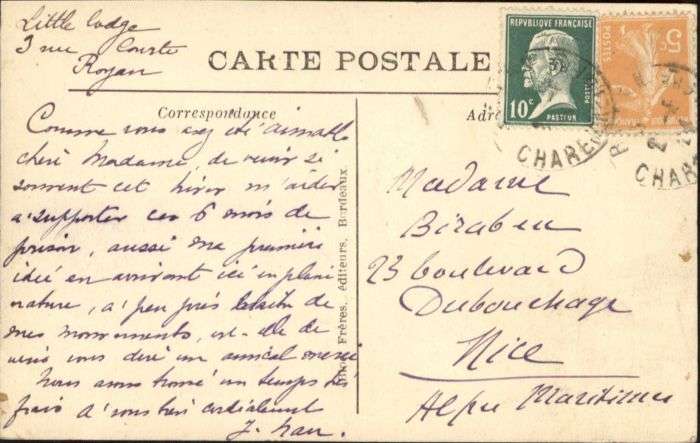 Little Lodge
3 rue Courte
Royan
CARTE POSTALE
RÉPUBLIQUE FRANÇAISE
10c
PASTEUR
POSTES
5c
CHARE
CHAR
Correspondance
Adr
Comme vous avez été aimable
chère Madame, de venir si
souvent cet hiver m'aider
a supporter ces 6 mois de
prison, aussi ma première
idée en arrivant ici en pleine
nature, a peu près de
mes mouvements, est-elle de
venir vous dire un amical merci
Nous avons trouvé un temps très
frais à vous très cordialement
J.
Frères, éditeurs, Bordeaux.
Madame
Biraben
23 boulevard
Dubouchage
Nice
Alpes Maritimes